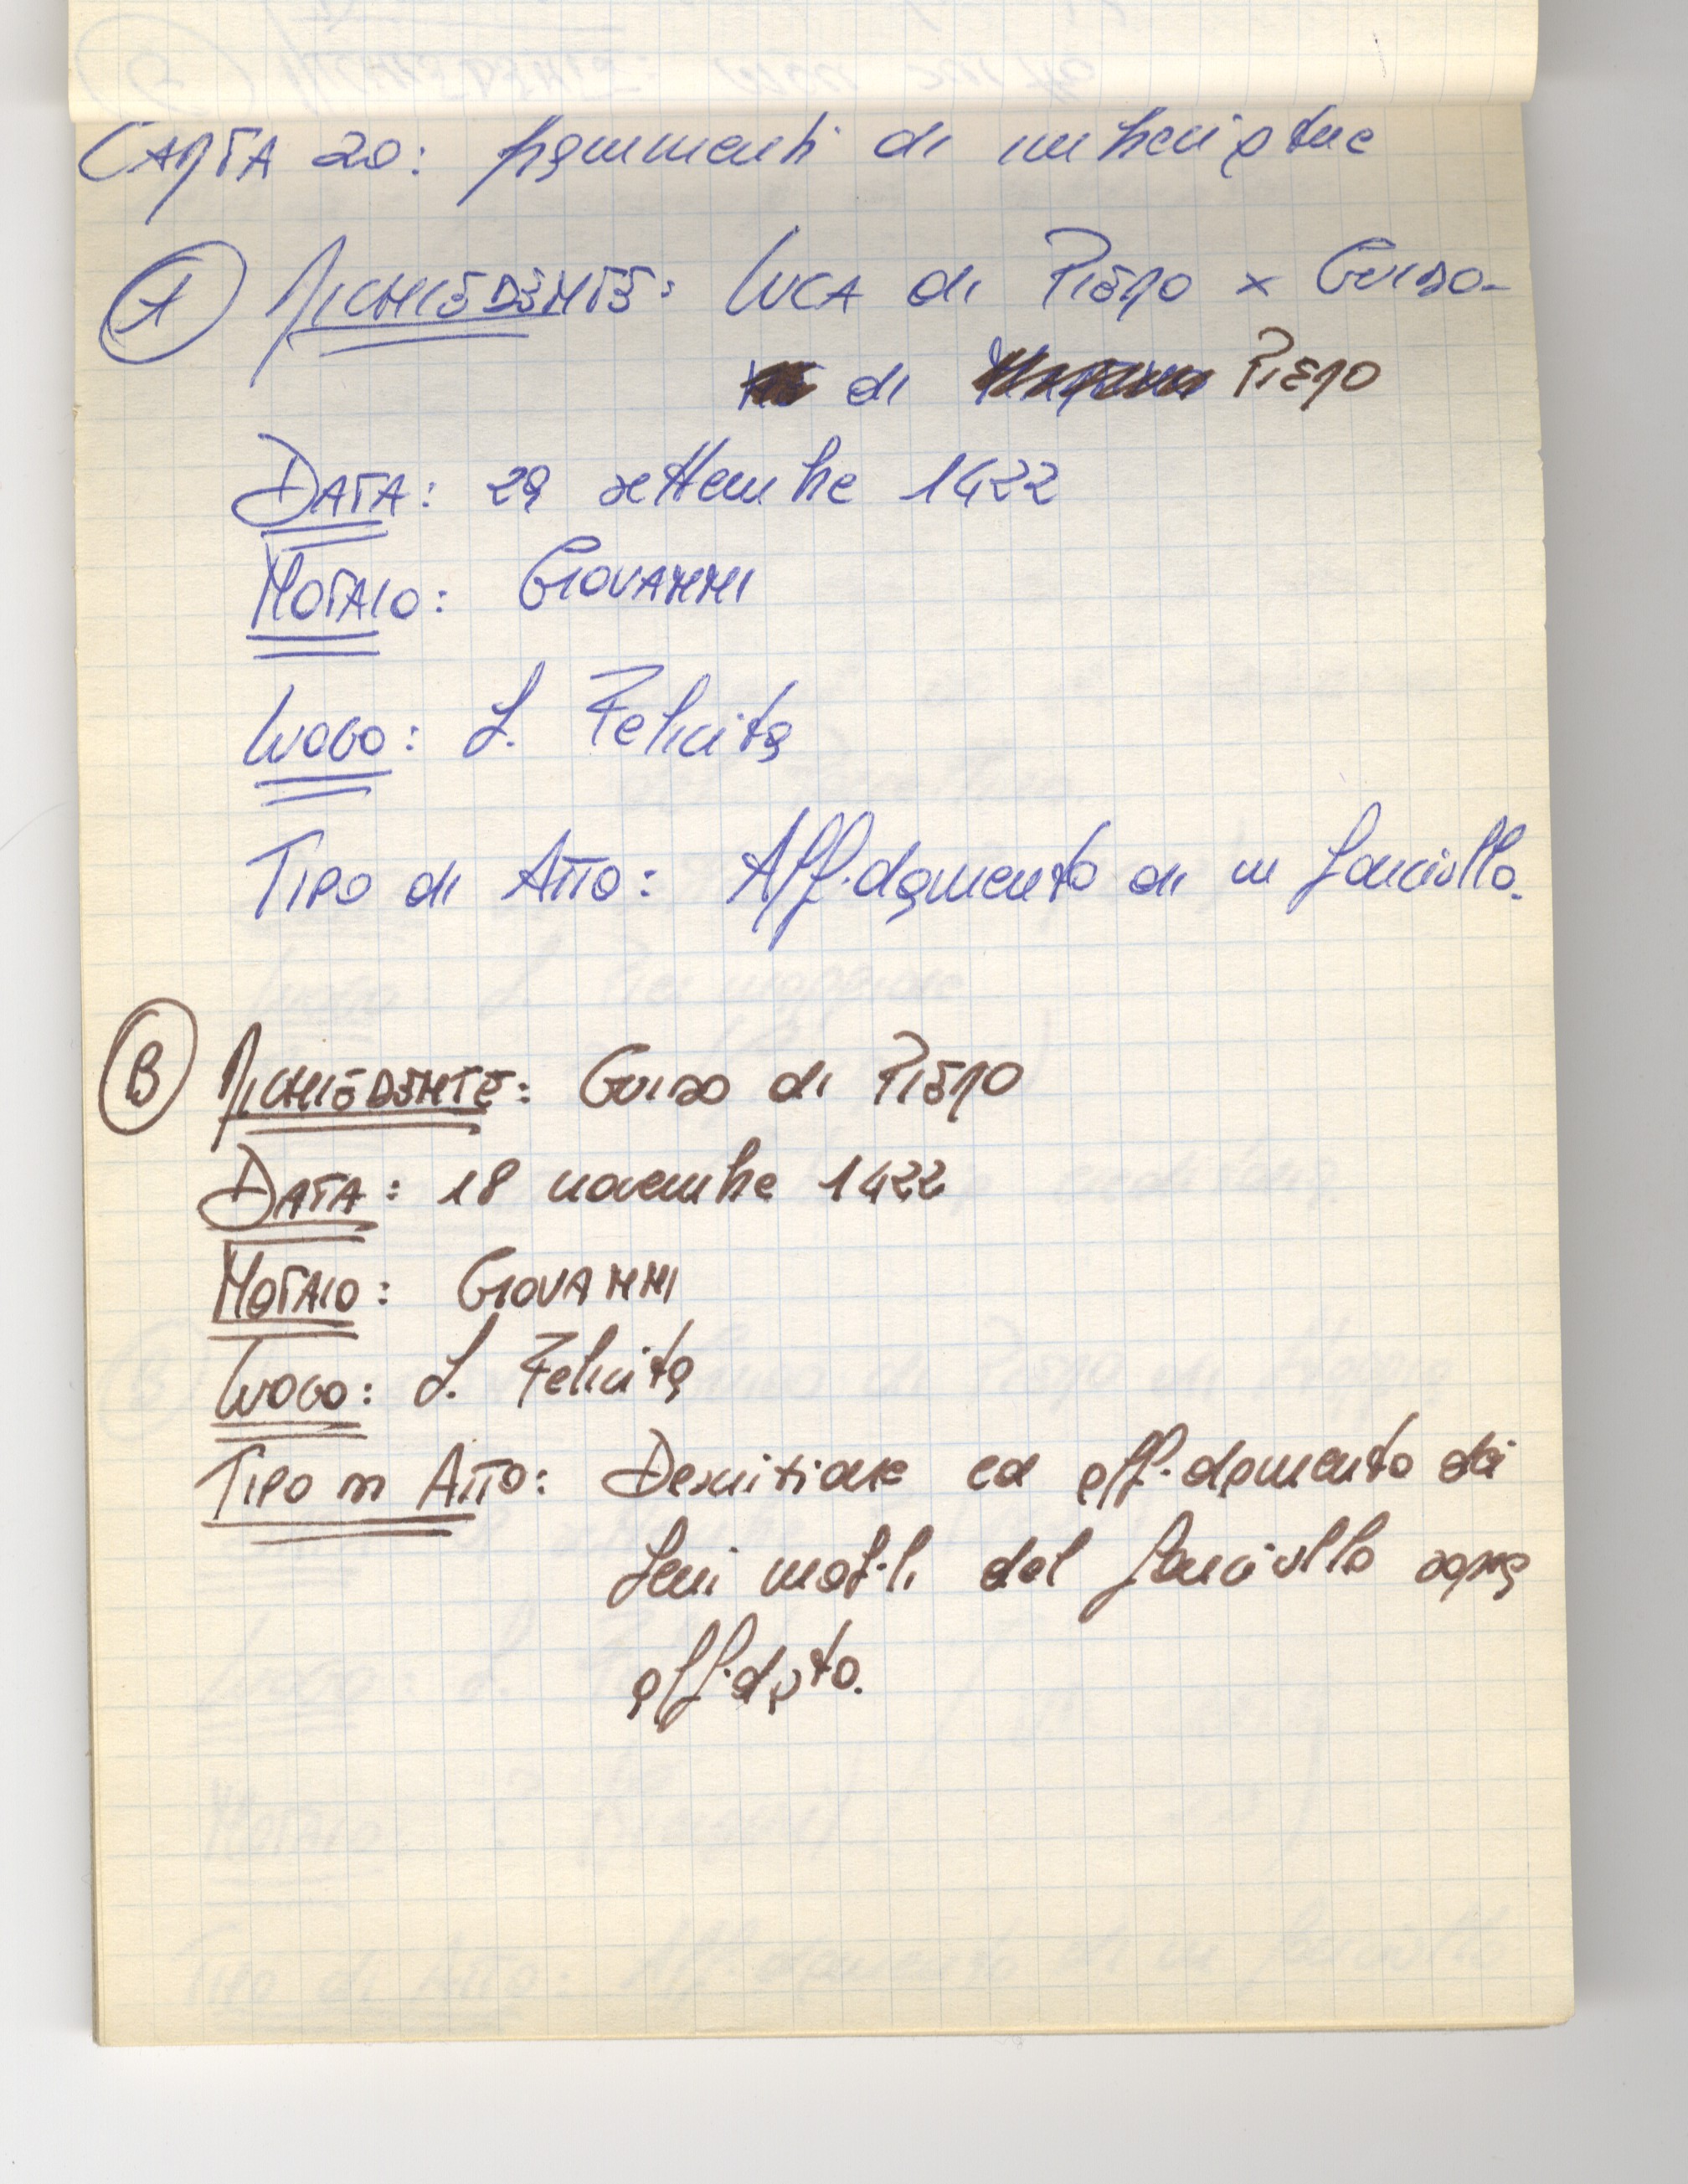 CARTA 20: frammenti di imbreviature
A RICHIEDENTE: LUCA di PIERO x GUIDO
di PIERO
DATA: 29 settembre 1422
NOTAIO: GIOVANNI
LUOGO: S. Felicita
TIPO di ATTO: Affidamento di un fanciullo.
B RICHIEDENTE: GUIDO di PIERO
DATA: 18 novembre 1422
NOTAIO: GIOVANNI
LUOGO: S. Felicita
TIPO DI ATTO: Descrizione ed affidamento dei
beni mobili del fanciullo sopra
affidato.